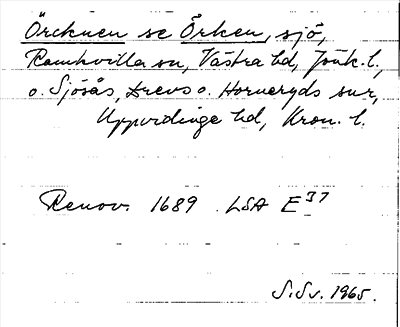 Örcknen se Örken, sjö,
Ramkvilla sn, Västra hd, Jönk. l.,
o. Sjösås, Drevs o. Hornaryds snr,
Uppvidinge hd, Kron. l.
Renov. 1689. LSA E37
S. Sv. 1965.